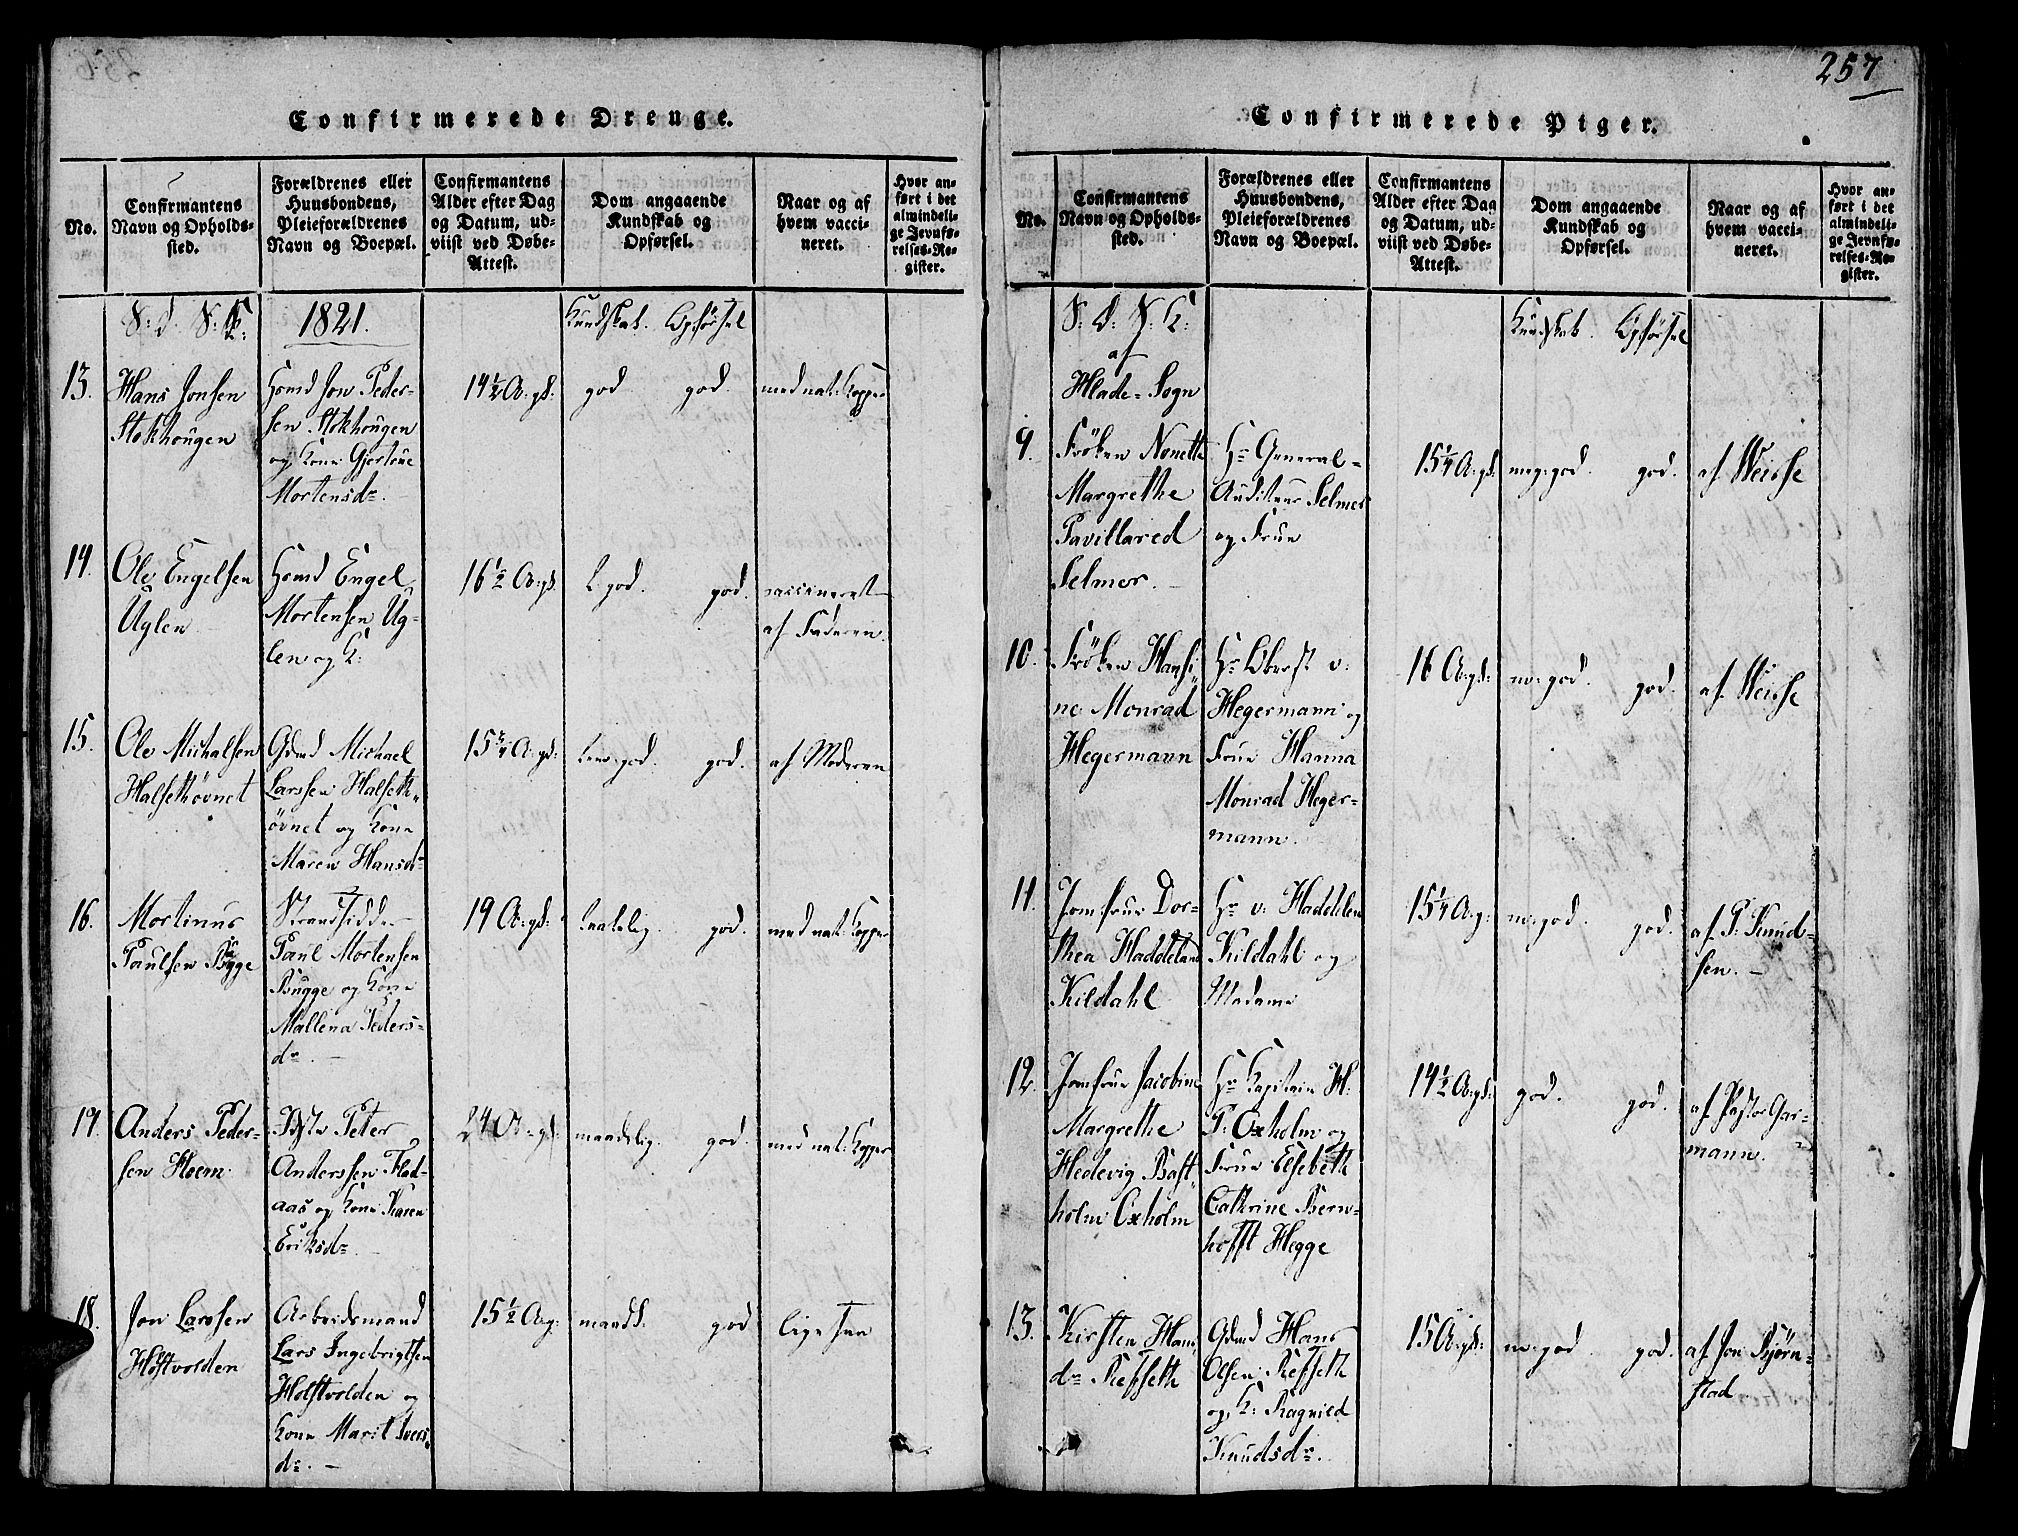 Confirmerede Drenge.
No.
Confirmantens
Navn og Opholds-
sted.
Forældrenes eller
Huusbondens,
Pleieforældrenes
Navn og Boepæl.
Confirmantens
Alder efter Dag
og Datum, ud-
viist ved Døbe-
Attest.
Dom angaaende
Kundskab og
Opførsel.
Naar og af
hvem vacci-
neret.
Hvor an-
ført i det
almindeli-
ge Jevnfø-
relses-Re-
gister.
S: d. S: K:
1821.
Kundskab. Opførsel
13.
Hans Jonsen
Stokhougen
Huusmd Jon Peder-
sen Stokhougen
og Kone Gjertrue
Mortensdr.
14½ A: gl:
god god.
med nat: Kopper
14.
Ole Engelsen
Uglen
Huusmd Engel
Mortensen Ug-
len og K:
16½ A: gl.
god. god.
vaccineret
af Faderen.
15.
Ole Michalsen
Halsethøvnet
Gdmd Michael
Larssen Halseth-
øvnet og Kone
Maren Hansdr
15¾ A: gl:
god. god.
af Moderen
16.
Mortinus
Paulsen Bugge
Strandsidder
Paul Mortensen
Bugge og Kone
Mallena Peders-
dr. –
19 A: gl:
maadelig. god.
med nat: Kopper
17.
Anders Peder-
sen Hoem.
Peter
Anderssen Flad-
aas og Kone Karen
Eriksdr.
24 A: gl:
maadelig. god.
med nat: Kopper
18.
Jon Larssen
Holstvolden
Arbeidsmand
Lars Ingebrigtsen
Holstvolden og
Kone Marit Ivers-
dr. –
15½ A: g:
maadl. god
ligesaa
257
Confirmerede Piger.
No.
Confirmantens
Navn og Opholds-
sted.
Forældrenes eller
Huusbondens,
Pleieforældrenes
Navn og Boepæl.
Confirmantens
Alder efter Dag
og Datum, ud-
viist ved Døbe-
Attest.
Dom angaaende
Kundskab og
Opførsel.
Naar og af
hvem vacci-
neret.
Hvor an-
ført i det
almindeli-
ge Jevnfø-
relses-Re-
gister.
S: d: S: K:
af
Hlade-Sogn
Kundskab. Opførsel
9.
Frøken Nonette
Margrethe
Pavillared
Selmer.
Hr General-
Auditeur Selmer
og Frue
15¼ A: gl.
meg: god. god.
af Weisse
10.
Frøken Hansi-
ne Monrad
Hegermann
Hr Oberst v:
Hegermann og
Frue Hanna
Monrad Heger-
mann.
16 A: gl:
m: god. god.
af Weisse
11.
Jomfrue Dor-
thea Haddeland
Kildahl
Hr v: Haddelen
Kildahl og
Madame
15¼ A: g:
m: god. god.
af P: Knud-
sen. –
12.
Jomfrue Jacobine
Margrethe
Hedevig Bast-
holm Oxholm
Hr Kapitain H:
P: Oxholm og
Frue Elsebeth
Cathrine Bern-
hofft Hegge
14½ A: gl:
god. god.
af Pastor Gar-
mann.
13.
Kirsten Hans-
dr Refseth
Gdmd Hans
Olsen Refseth
og K: Ragnild
Knudsdr.
15 A: gl:
m: god god.
af Jon Bjørn-
stad